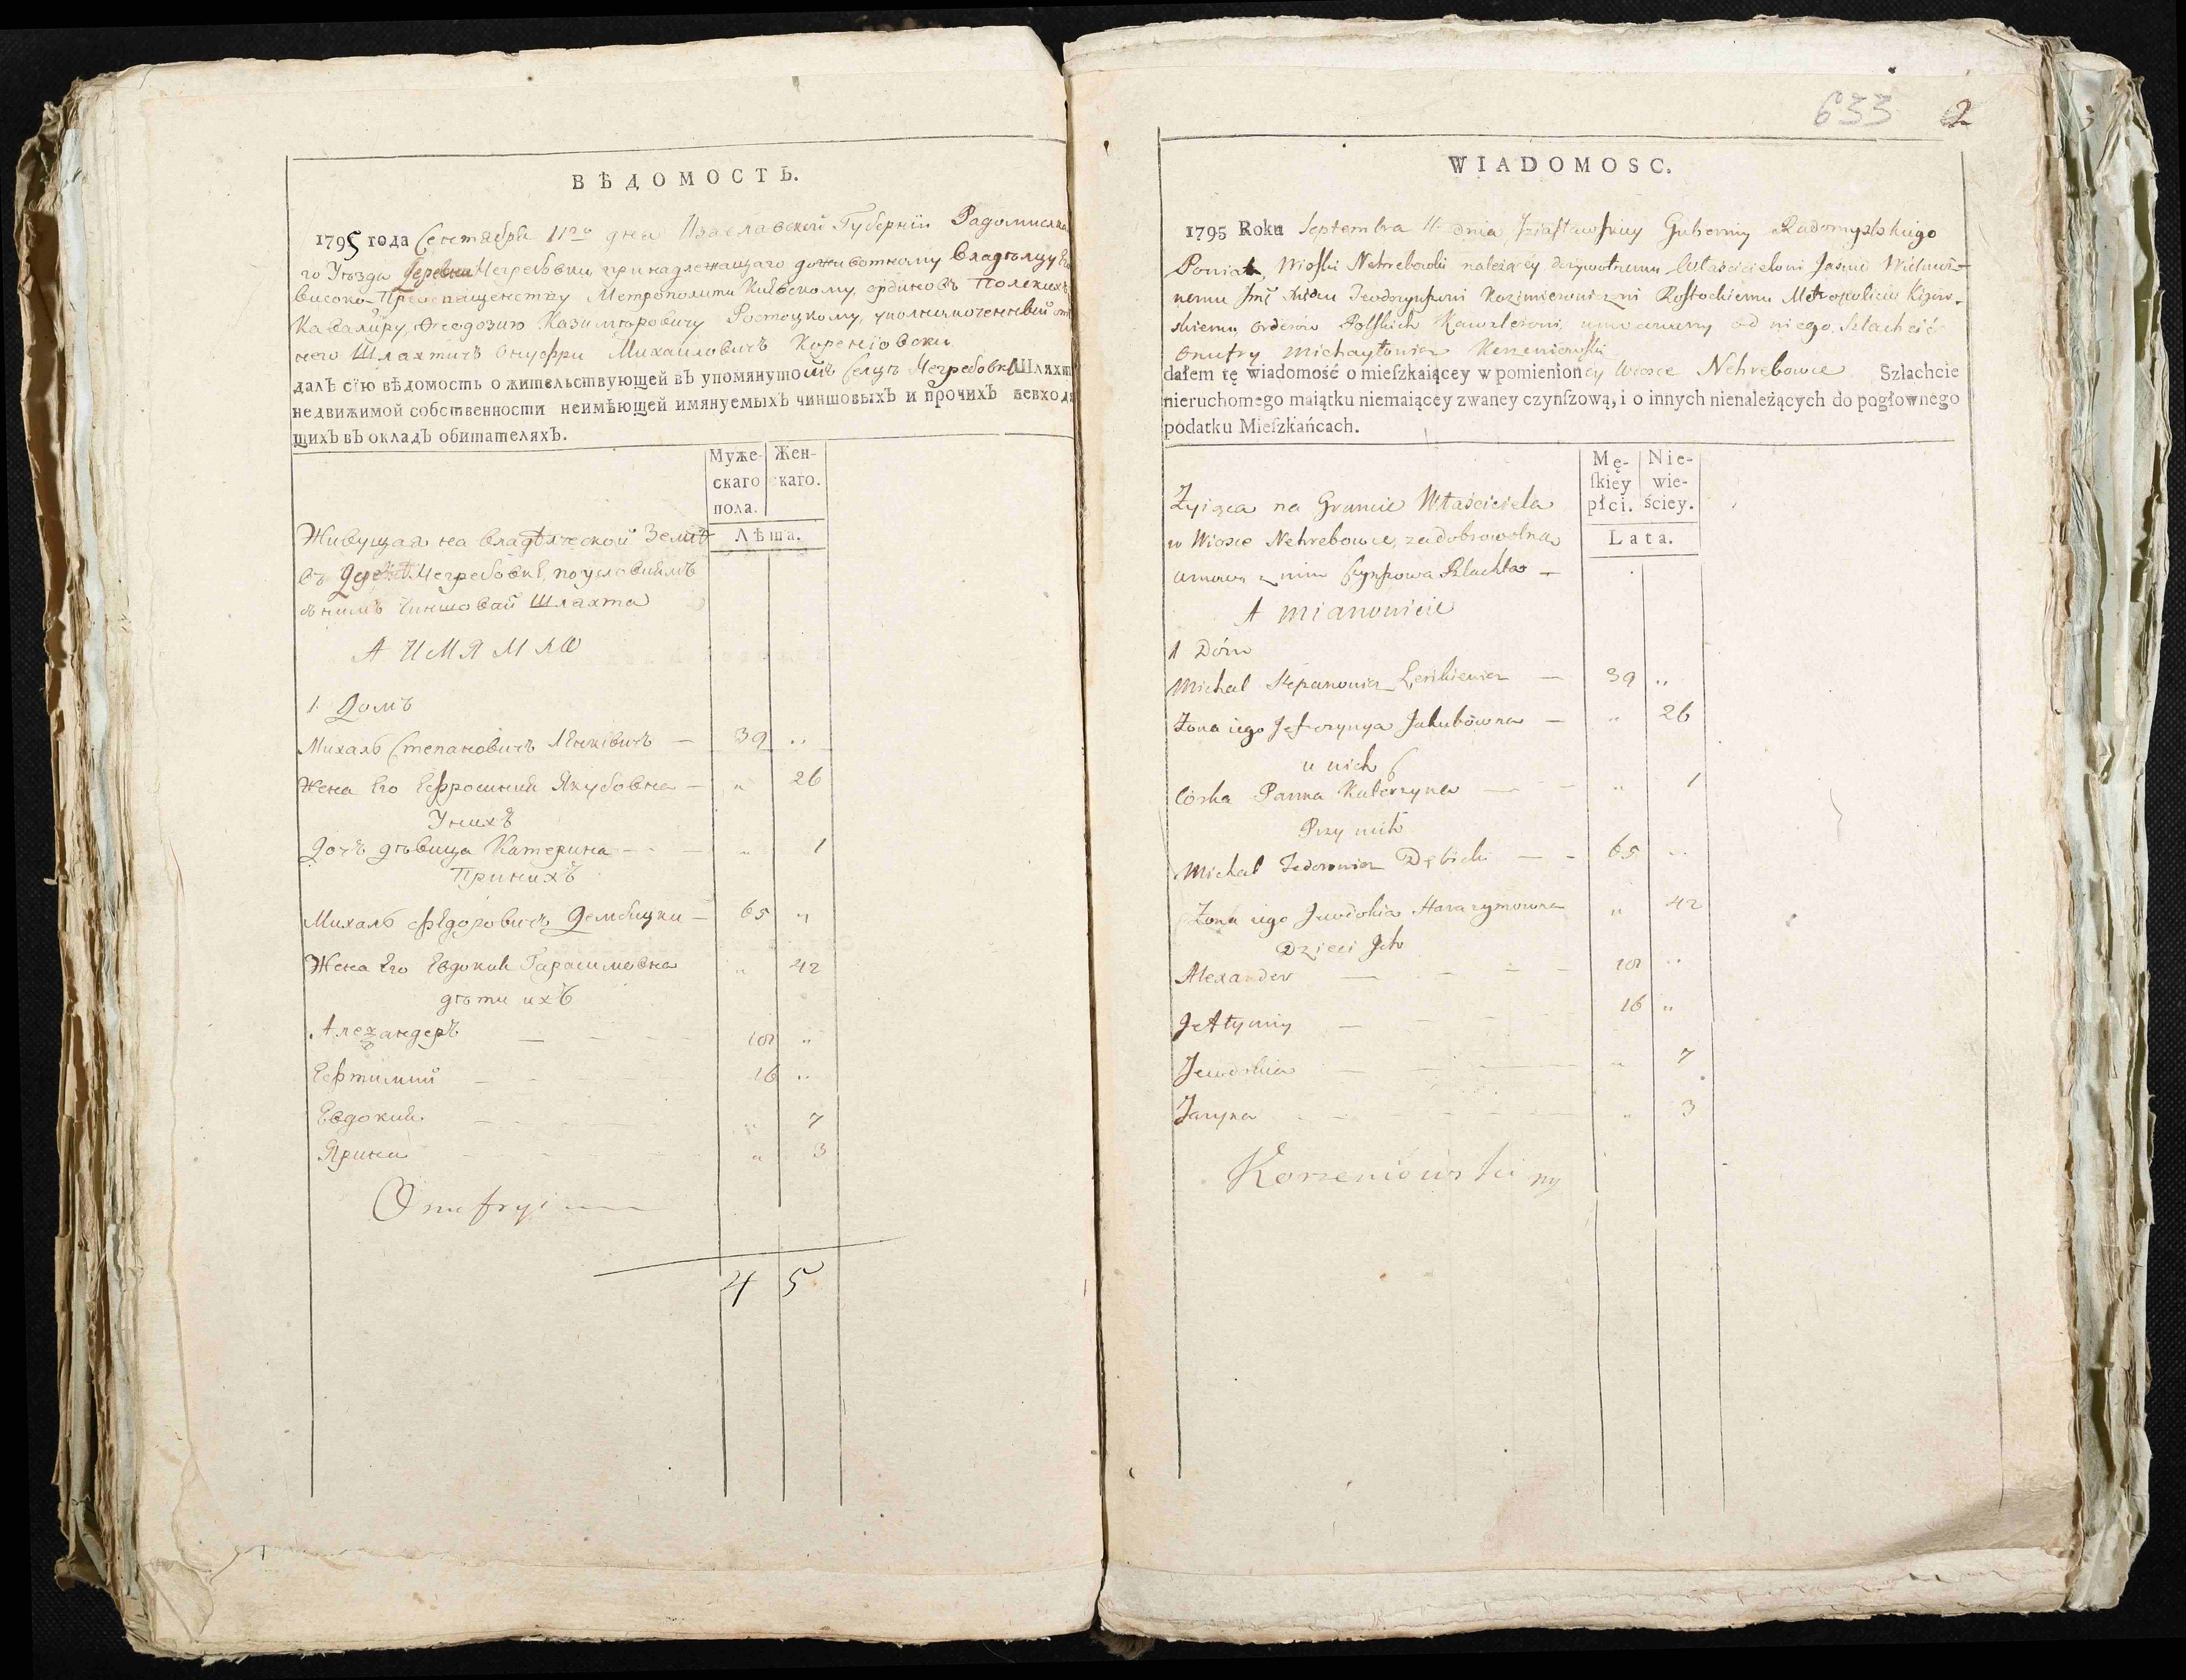 ВѢДОМОСТЬ.
1795 года Сентября 11го дня Изаславской Губерніи Радомислска
го Уѣзда Деревни Негребовки принадлежащаго доживотному владѣлцу Его
високо-Преосвященству Метрополити Киевскому, ординовъ Полскихъ
Кавалѣру, Феодозию Казимѣровичу Ростоцкому, уполномоченный отъ
него Шлахтичъ Онуфри Михайловичъ Корениовски
далъ сїю вѣдомость о жительствующей въ упомянутомъ Селцѣ Негребовки Шляхт
недвижимой собственности неимѣющей имянуемыхъ чиншовыхъ и прочихъ невходя
щихъ въ окладъ обитателяхъ.
Муже- Жен-
скаго скаго.
пола.
Лѣта.
Живущая на владѣлческой Землѣ
въ Деревнѣ Негребовкѣ, по условиямъ
съ нимъ Чиншовая Шляхта
А ИМЯННО
1. Домъ
Михалъ Степановичъ Ленкѣвичъ — 39 ..
Жена Его Ефросиния Якубовна — " 26
У нихъ
Дочъ дѣвица Катерина — " 1
При нихъ
Михалъ Федоровичъ Дембицки — 65 "
Жена Его Евдокия Гарасимовна " 42
дѣти ихъ
Александеръ — 18 "
Ефтимий — 16 ..
Евдокия — " 7
Ярина " 3
Onufryi
4 5
633 2
WIADOMOSC.
1795 Roku Septembra 11 dnia Iziasławskiey Gubernij Radomyslskiego
Powiatu, Wioski Nehrebowki należący dożywotnemu Właścicielowi Jasnie Wielmoż-
nemu Jmć Xiędzu Teodozyuszowi Kazimierowiczowi Rostockiemu Metropolicie Kijow-
skiemu orderów Polskich Kawalerowi, umocowany od niego Szlachcic
Onufry Michayłowicz Korzeniowski
dałem tę wiadomość o mieſzkaiącey w pomienioney Wiosce Nehrebowce Szlachcie
nieruchomego maiątku niemaiącey zwaney czynſzową, i o innych nienależących do pogłownego
podatku Mieſzkańcach.
Mę- Nie-
ſkiey wie-
płci. ściey.
Lata.
Żyiąca na Gruncie Właściciela
w Wiosce Nehrebowce, za dobrowolną
umową z nim Czynszowa Szlachta —
A mianowicie
1 Dóm
Michał Stepanowicz Leńkiewicz — 39 ..
Żona iego Jefrozynya Jakubówna — " 26
u nich
Córka Panna Katerzyna — " 1
Przy nich
Michał Fedorowicz Dębicki — 65 ..
Żona iego Jewdokia Harazymowna " 42
Dzieci Ich
Alexander — 18 ..
Jeftymiy — 16 "
Jewdokia — " 7
Jaryna — " 3
Korzeniówski